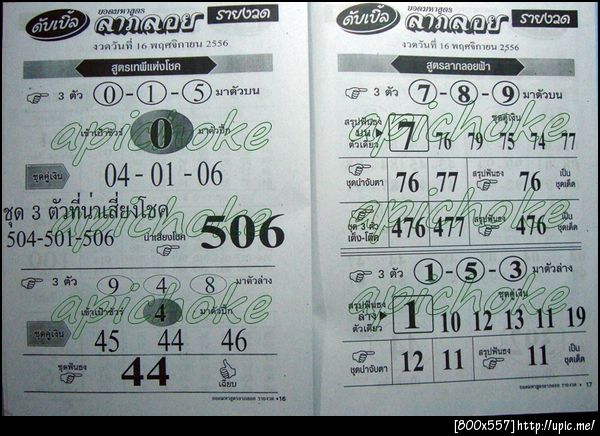 ดับเบิ้ล ยอดมหาสูตร ลากลอย รายงวด
งวดวันที่ 16 พฤศจิกายน 2556
สูตรเทพีแห่งโชค
3 ตัว 0-1-5 มาตัวบน
เข้าเป้าชัวร์ 0 มาตัวปิ๊ก
ชุดคู่เงิน 04-01-06
ชุด 3 ตัวที่น่าเสี่ยงโชค
504-501-506 น่าเสี่ยงโชค 506
3 ตัว 9 4 8 มาตัวล่าง
เข้าเป้าชัวร์ 4 มาตัวปิ๊ก
ชุดคู่เงิน 45 44 46
ชุดฟันธง 44 เฉียบ
ยอดมหาสูตรลากลอย รายงวด •16
ดับเบิ้ล ยอดมหาสูตร ลากลอย รายงวด
งวดวันที่ 16 พฤศจิกายน 2556
สูตรลากลอยฟ้า
3 ตัว 7-8-9 มาตัวบน
สรุปฟันธง บน ตัวเดียว 7 ชุดคู่เงิน 76 79 75 74 77
ชุดน่าจับตา 76 77 สรุปฟันธง 76 เป็นชุดเด็ด
ชุด 3 ตัว เต็ง-โต๊ด 476 477 สรุปฟันธง 476 เป็นชุดเด็ด
3 ตัว 1-5-3 มาตัวล่าง
สรุปฟันธง ล่าง ตัวเดียว 1 ชุดคู่เงิน 10 12 13 11 19
ชุดน่าจับตา 12 11 สรุปฟันธง 11 เป็นชุดเด็ด
ยอดมหาสูตรลากลอย รายงวด •17
apichoke
apichoke
apichoke
apichoke
apichoke
apichoke
[800x557]http://upic.me/